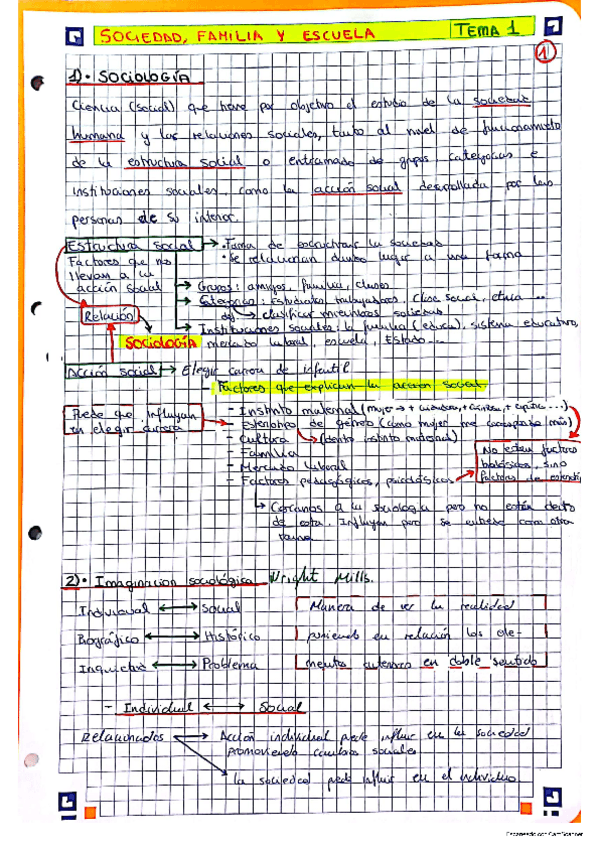 SOCIEDAD, FAMILIA Y ESCUELA TEMA 1
1
1)· SOCIOLOGÍA
Ciencia (social) que tiene por objetivo el estudio de la sociedad
humana y las relaciones sociales, tanto al nivel de funcionamiento
de la estructura social o entramado de grupos, categorías e
instituciones sociales, como la acción social desarrollada por las
personas de su interior.
Estructura social → · Forma de estructurar la sociedad
· Se relacionan dando lugar a una forma
Factores que nos
llevan a la
acción social
→ Grupos: amigos, familia, clases
→ Categorías: Estudiantes, trabajadores, clase social, etnia ...
→ clasificar miembros sociedad
→ Instituciones sociales: la familia (educa), sistema educativo,
mercado laboral, escuela, Estado...
Relación
SOCIOLOGÍA
Acción social → Elegir carrera de infantil
- Factores que explican la acción social.
Puede que influyan
en elegir carrera
- Instinto maternal (mujer → + cuidadosa, + cariñosa, + ...)
- Estereotipos de género (como mujer me corresponde más)
- Cultura → (dentro instinto maternal)
- Familia
- Mercado laboral
- Factores pedagógicos, psicológicos
No existen factores
biológicos, sino
factores de
→ Cercanos a la sociología pero no están dentro
de esta. Influyen pero se estudia como otra
rama.
2)· Imaginación sociológica Wright Mills.
Individual ↔ Social
Biográfico ↔ Histórico
Inquietud ↔ Problema
Manera de ver la realidad
poniendo en relación los ele-
mentos anteriores en doble sentido
- Individual ↔ Social
Relacionados → Acción individual puede influir en la sociedad
promoviendo cambios sociales
→ la sociedad puede influir en el individuo.
Escaneado con CamScanner